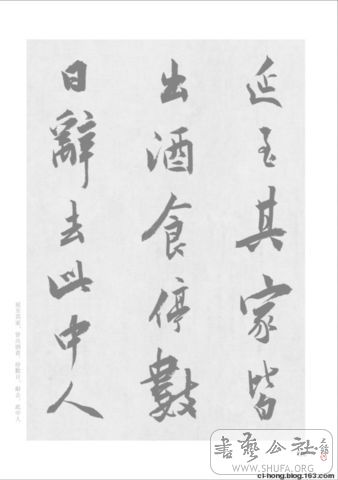 延至其家皆
出酒食停數
日辭去此中人
延至其家，皆出酒食。停數日，辭去。此中人
書藝公社
WWW.SHUFA.ORG
cl-hong.blog.163.com